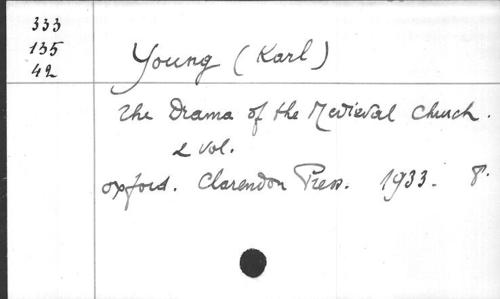 333
135
42
Young (Karl)
The Drama of the Medieval Church.
2 vol.
Oxford. Clarendon Press. 1933. 8°.